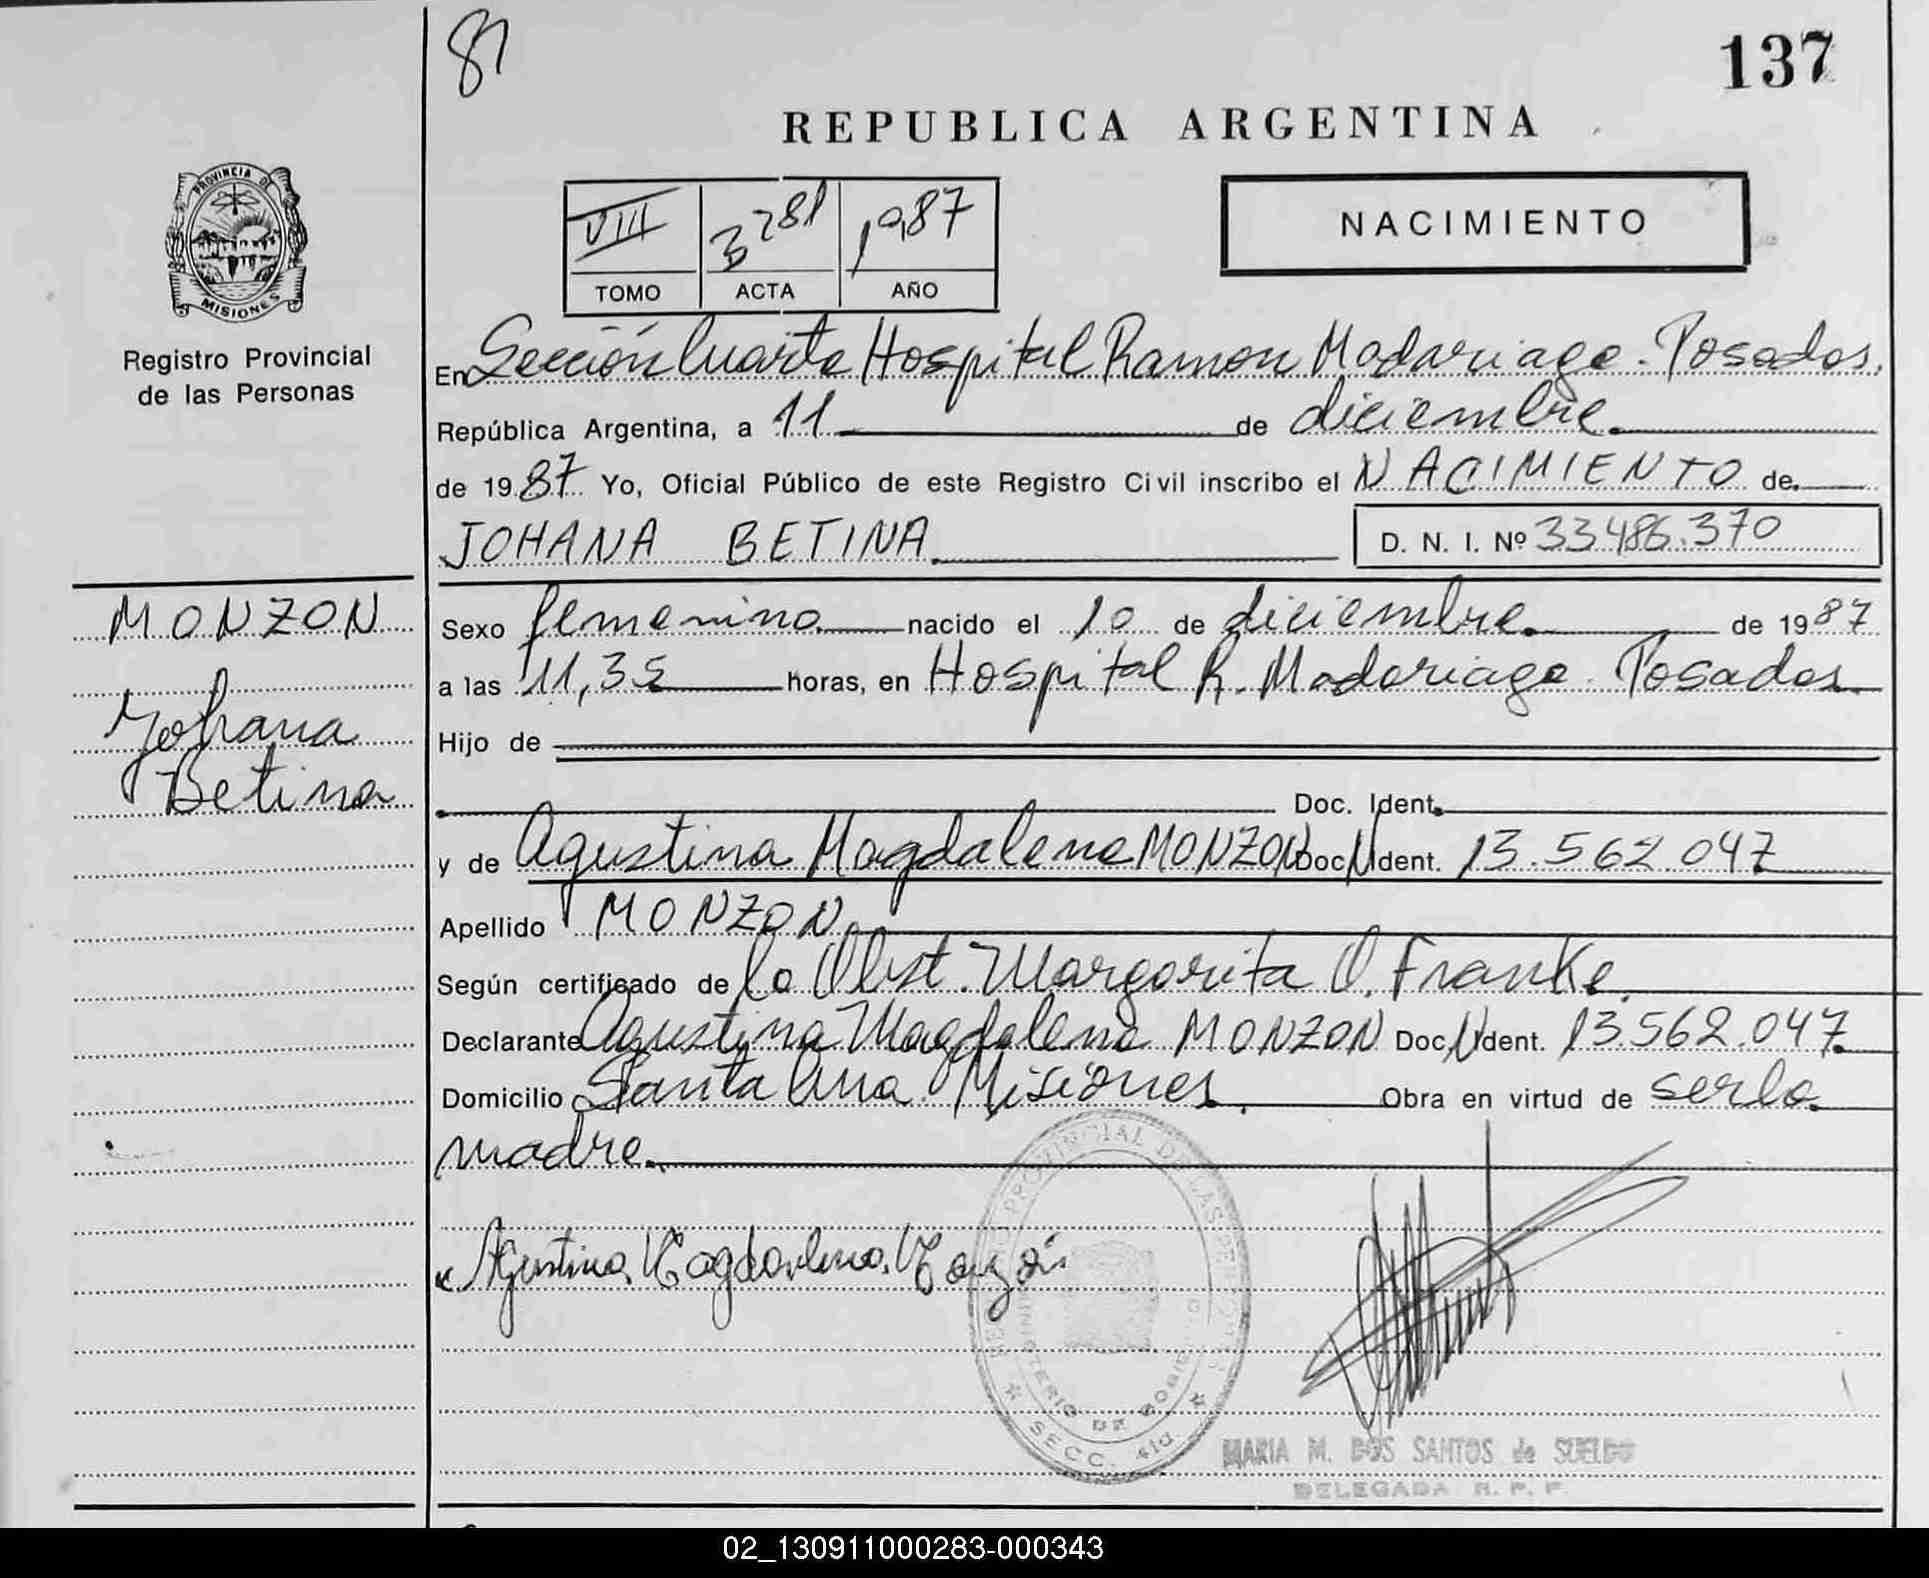 81
137
REPUBLICA ARGENTINA
PROVINCIA DE
MISIONES
Registro Provincial
de las Personas
VIII 3281 1987
TOMO ACTA AÑO
NACIMIENTO
En Sección Cuarta Hospital Ramon Madariaga. Posadas.
República Argentina, a 11 de diciembre
de 1987 Yo, Oficial Público de este Registro Civil inscribo el NACIMIENTO de
JOHANA BETINA D. N. I. Nº 33486.370
MONZON
Johana
Betina
Sexo femenino nacido el 10 de diciembre de 1987
a las 11,35 horas, en Hospital R. Madariaga Posadas
Hijo de
Doc. Ident.
y de Agustina Magdalena MONZON Doc. N Ident. 13.562.047
Apellido MONZON
Según certificado de la Obst. Margarita O. Franke.
Declarante Agustina Magdalena MONZON Doc. N Ident. 13.562.047
Domicilio Santa Ana Misiones. Obra en virtud de ser la
madre.
Agustina Magdalena Monzón
SECC. 4ta
MARIA M. DOS SANTOS de SUELDO
DELEGADA R. P. P.
02_130911000283-000343